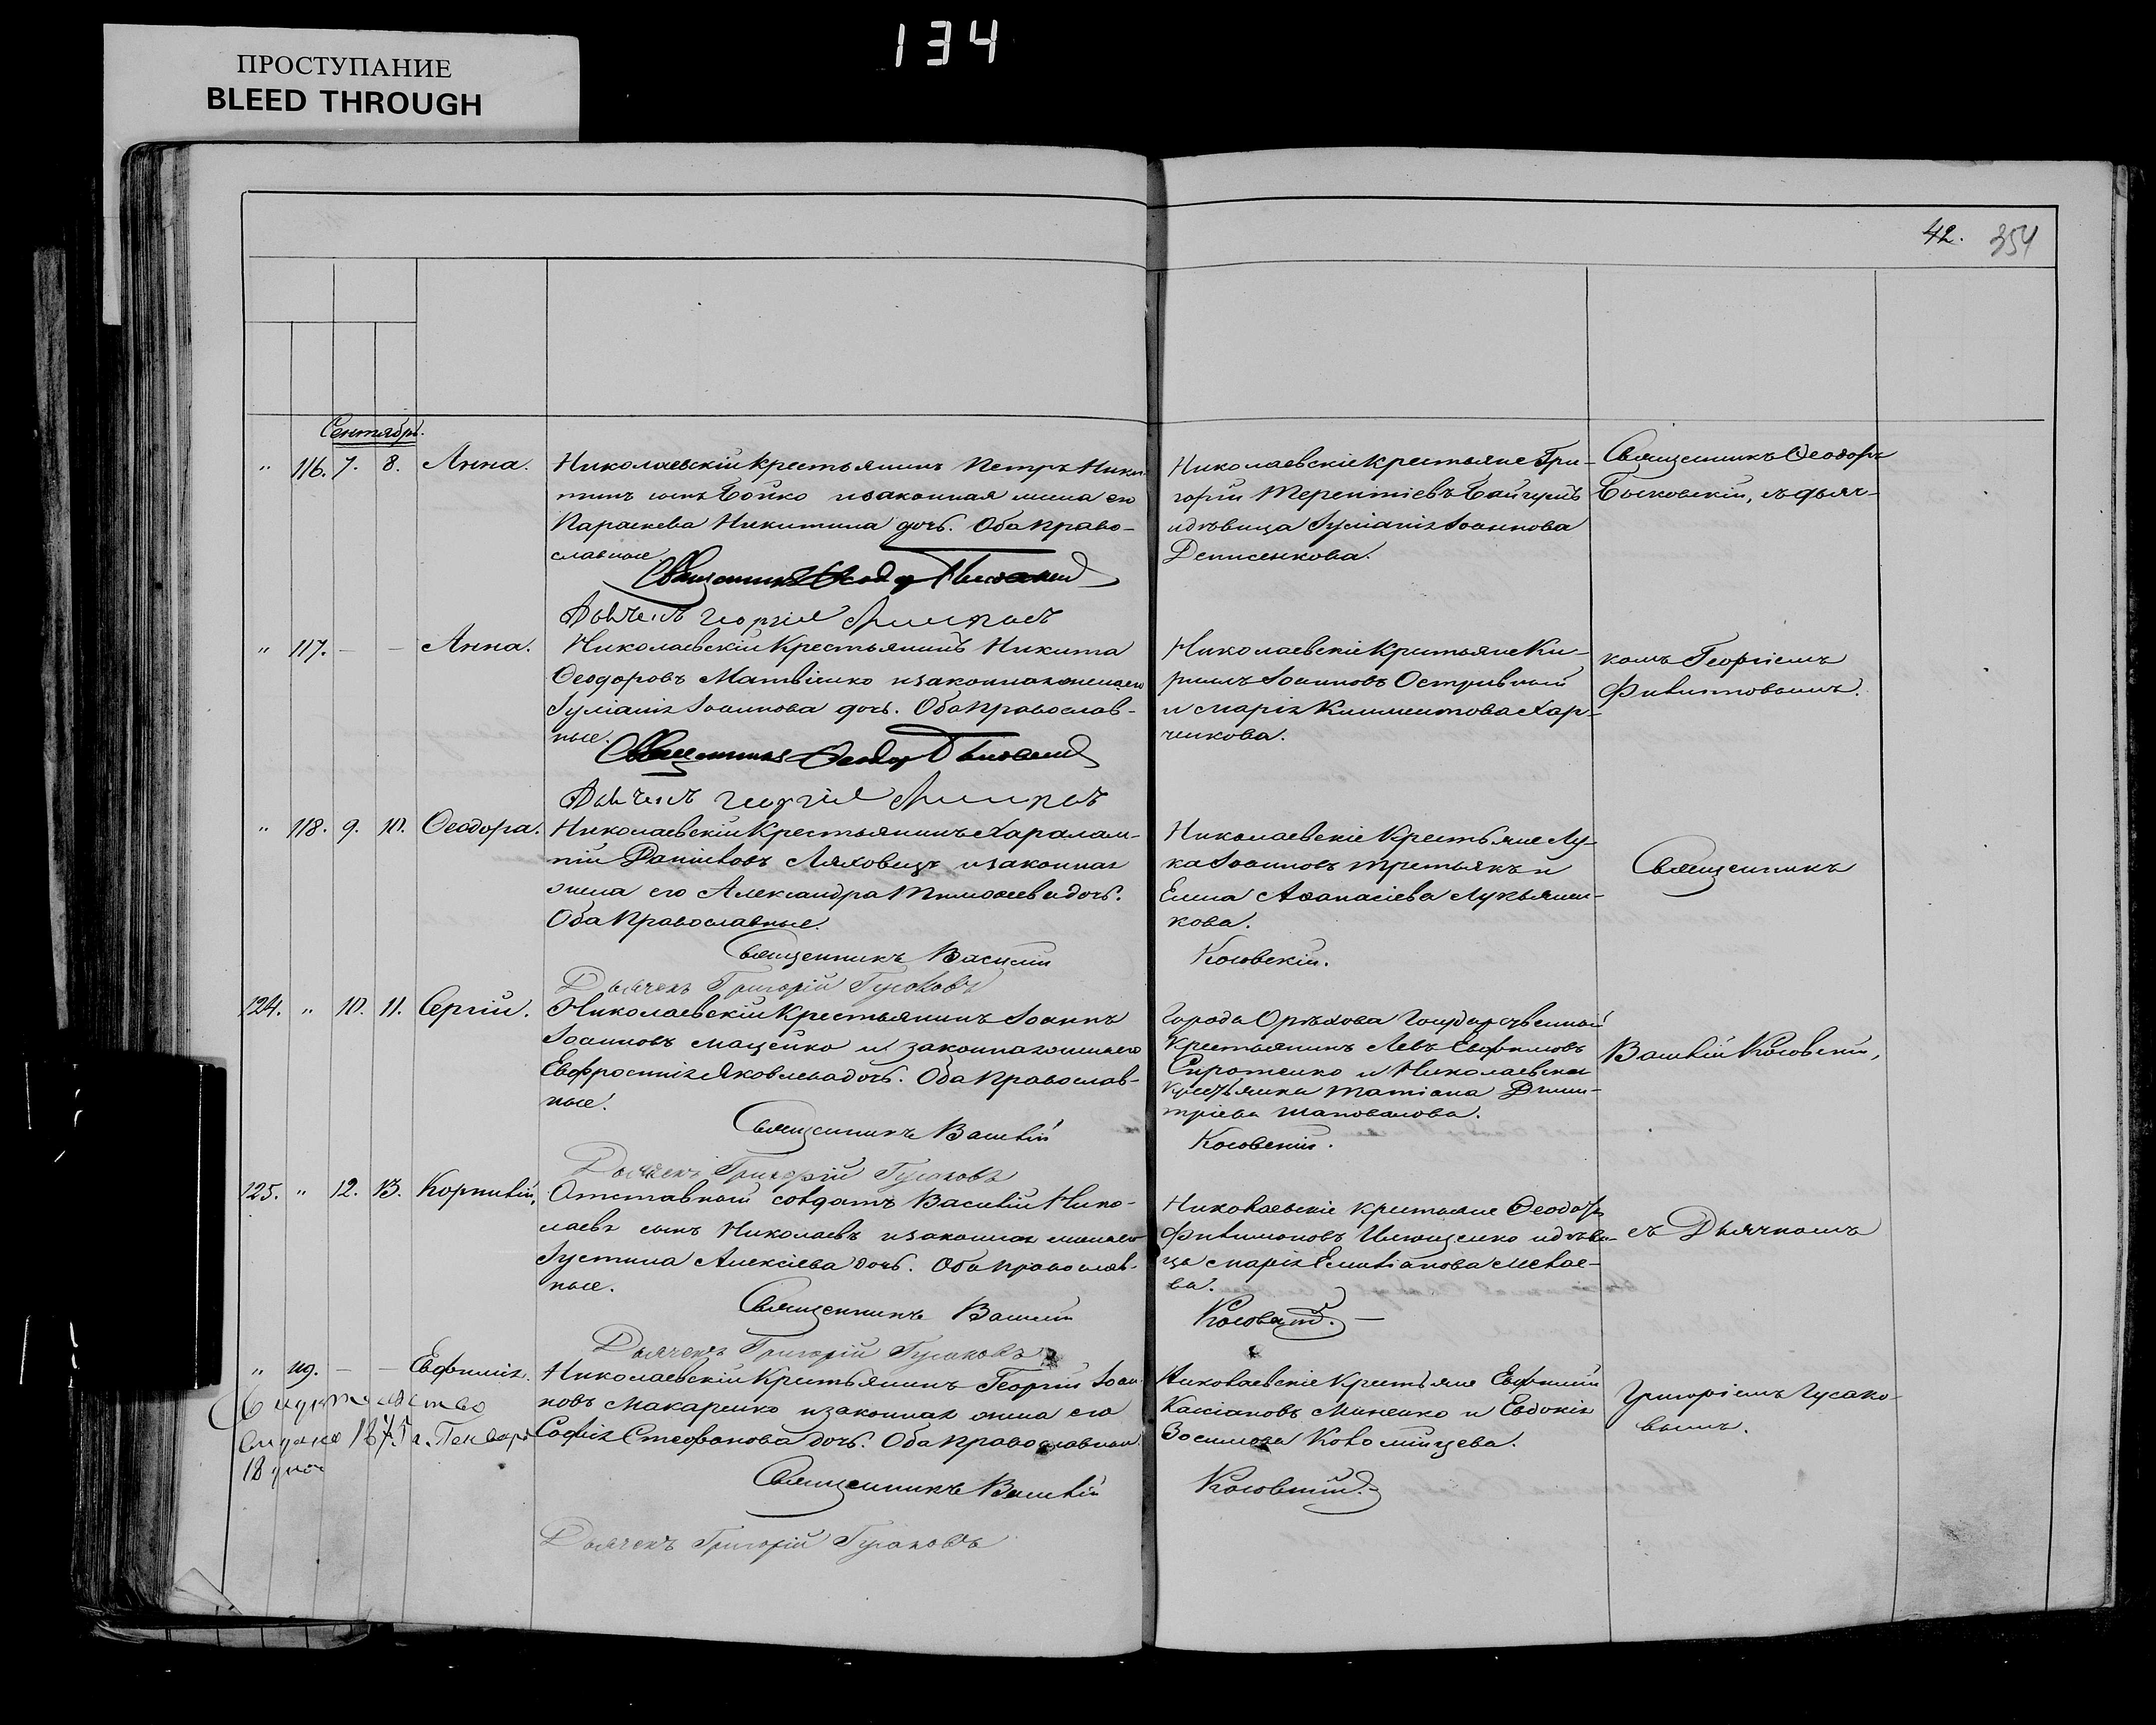 134
ПРОСТУПАНИЕ
BLEED THROUGH
42. 354
Сентябрь.
" 116. 7. 8. Анна.
Николаевскій крестьянинъ Петръ Ники-
тинъ сынъ Бойко и законная жена его
Параскева Никитина дочь. Оба право-
славные.
Священникъ Ѳеодоръ
Дьячекъ Георгій
Николаевскіе крестьяне Гри-
горій Терентіевъ
и дѣвица Іуліанія Іоаннова
Денисенкова.
Священникъ Ѳеодоръ
съ дьяч-
" 117. — — Анна.
Николаевскій крестьянинъ Никита
Ѳеодоровъ Матвіенко и законная жена его
Іуліанія Іоаннова дочь. Оба православ-
ные.
Священникъ Ѳеодоръ
Дьячекъ Георгій
Николаевскіе крестьяне Ки-
рилъ Іоанновъ Остривный
и Марія Климентова Хар-
ченкова.
комъ Георгіемъ
" 118. 9. 10. Ѳеодора.
Николаевскій крестьянинъ Харалам-
пій Даніиловъ Ляховецъ и законная
жена его Александра Тимоѳеева дочь.
Оба православные.
Священникъ Василій
Дьячекъ Григорій Гусаковъ
Николаевскіе крестьяне Лу-
ка Іоанновъ Третьякъ и
Елена Аѳанасіева Лукьянен-
кова.
Косовскій.
Священникъ
124. " 10. 11. Сергій.
Николаевскій крестьянинъ Іоаннъ
Іоанновъ Мацейко и законная жена его
Евфросинія Яковлева дочь. Оба православ-
ные.
Священникъ Василій
Дьячекъ Григорій Гусаковъ
Города Орѣхова Государственный
крестьянинъ Левъ Евфимовъ
Сиротенко и Николаевская
крестьянка Татіана Дими-
тріева Шаповалова.
Косовскій.
Василій Косовскій,
125. " 12. 13. Корнилій.
Отставный солдатъ Василій Нико-
лаевъ сынъ Николаевъ и законная жена его
Іустина Алексіева дочь. Оба православ-
ные.
Священникъ Василій
Дьячекъ Григорій Гусаковъ
Николаевскіе крестьяне Ѳеодоръ
Филимоновъ Ильющенко и дѣви-
ца Марія Емиліанова
ва.
Косовскій.
съ Дьячкомъ
" 119. — — Евфимія.
Николаевскій крестьянинъ Георгій Іоан-
новъ Макаренко и законная жена его
Софія Стефанова дочь. Оба православные.
Священникъ Василій
Дьячекъ Григорій Гусаковъ
Николаевскіе крестьяне Евфимій
Кассіановъ Миненко и Евдокія
Зосимова Коломійцева.
Косовскій.
Григоріемъ Гусако-
вымъ.
Свидѣтельство
выдано 1875 г. Генваря
18 дня